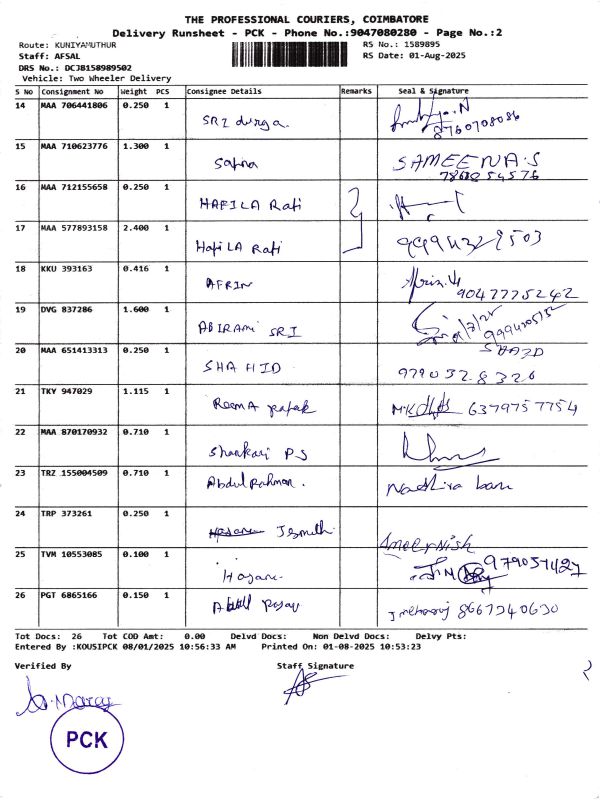 THE PROFESSIONAL COURIERS, COIMBATORE
Delivery Runsheet - PCK - Phone No.:9047080280 - Page No.:2
Route: KUNIYAMUTHUR
Staff: AFSAL
DRS No.: DCJB158989502
Vehicle: Two Wheeler Delivery
RS No.: 1589895
RS Date: 01-Aug-2025
S No Consignment No Weight PCS Consignee Details Remarks Seal & Signature
14 MAA 706441806 0.250 1 SRI durga. 8760708086
15 MAA 710623776 1.300 1 Sapna SAMEENA.S
16 MAA 712155658 0.250 1 HAFILA Rafi
17 MAA 577893158 2.400 1 HafiLA Rafi
18 KKU 393163 0.416 1 AFRIN 9047775242
19 DVG 837286 1.600 1 ABIRAMI SRI
20 MAA 651413313 0.250 1 SHAHID 9790328320
21 TKY 947029 1.115 1 ReemA 6379757754
22 MAA 870170932 0.710 1 Shankari P S
23 TRZ 155004509 0.710 1 Abdul Rahman. Nadhira banu
24 TRP 373261 0.250 1 Jsmith
25 TVM 10553085 0.100 1
26 PGT 6865166 0.150 1 8667340630
Tot Docs: 26 Tot COD Amt: 0.00 Delvd Docs: Non Delvd Docs: Delvy Pts:
Entered By :KOUSIPCK 08/01/2025 10:56:33 AM Printed On: 01-08-2025 10:53:23
Verified By Staff Signature
PCK